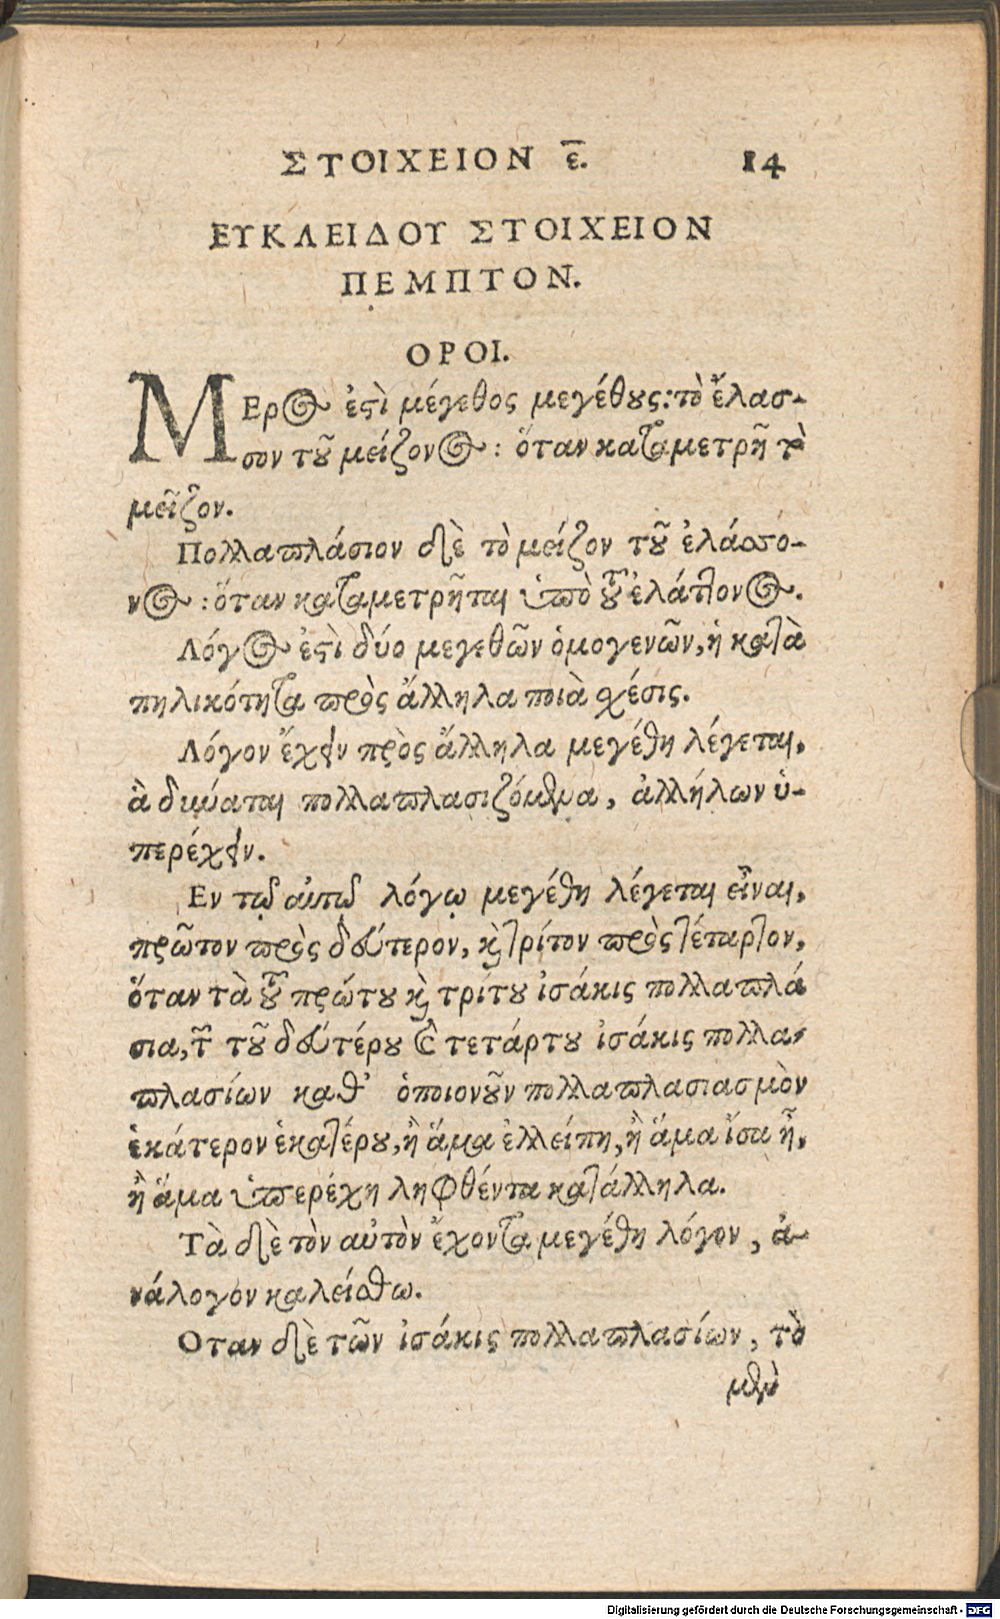 ΣΤΟΙΧΕΙΟΝ ε̅. 14
ΕΥΚΛΕΙΔΟΥ ΣΤΟΙΧΕΙΟΝ
ΠΕΜΠΤΟΝ.
ΟΡΟΙ.
ΜΕρος ἐςὶ μέγεθος μεγέθους: τὸ ἔλασ-
σον τοῦ μείζονος: ὅταν καταμετρῇ τὸ
μεῖζον.
Πολλαπλάσιον δὲ τὸ μείζον τοῦ ἐλάσσο-
νος: ὅταν καταμετρῆται ὑπὸ τοῦ ἐλάττονος.
Λόγος ἐςὶ δύο μεγεθῶν ὁμογενῶν, ἡ κατὰ
πηλικότητα πρὸς ἄλληλα ποιὰ σχέσις.
Λόγον ἔχειν πρὸς ἄλληλα μεγέθη λέγεται,
ἃ δύναται πολλαπλασιζόμενα, ἀλλήλων ὑ-
περέχειν.
Εν τῷ αὐτῷ λόγῳ μεγέθη λέγεται εἶναι,
πρῶτον πρὸς δεύτερον, καὶ τρίτον πρὸς τέταρτον,
ὅταν τὰ τοῦ πρώτου καὶ τρίτου ἰσάκις πολλαπλά
σια, τῶν τοῦ δευτέρου καὶ τετάρτου ἰσάκις πολλα-
πλασίων καθ’ ὁποιονοῦν πολλαπλασιασμὸν
ἑκάτερον ἑκατέρου, ἢ ἅμα ἐλλείπη, ἢ ἅμα ἴσα ᾖ,
ἢ ἅμα ὑπερέχη ληφθέντα κατάλληλα.
Τὰ δὲ τὸν αὐτὸν ἔχοντα μεγέθη λόγον, ἀ-
νάλογον καλείσθω.
Οταν δὲ τῶν ἰσάκις πολλαπλασίων, τὸ
μὲν
Digitalisierung gefördert durch die Deutsche Forschungsgemeinschaft - DFG